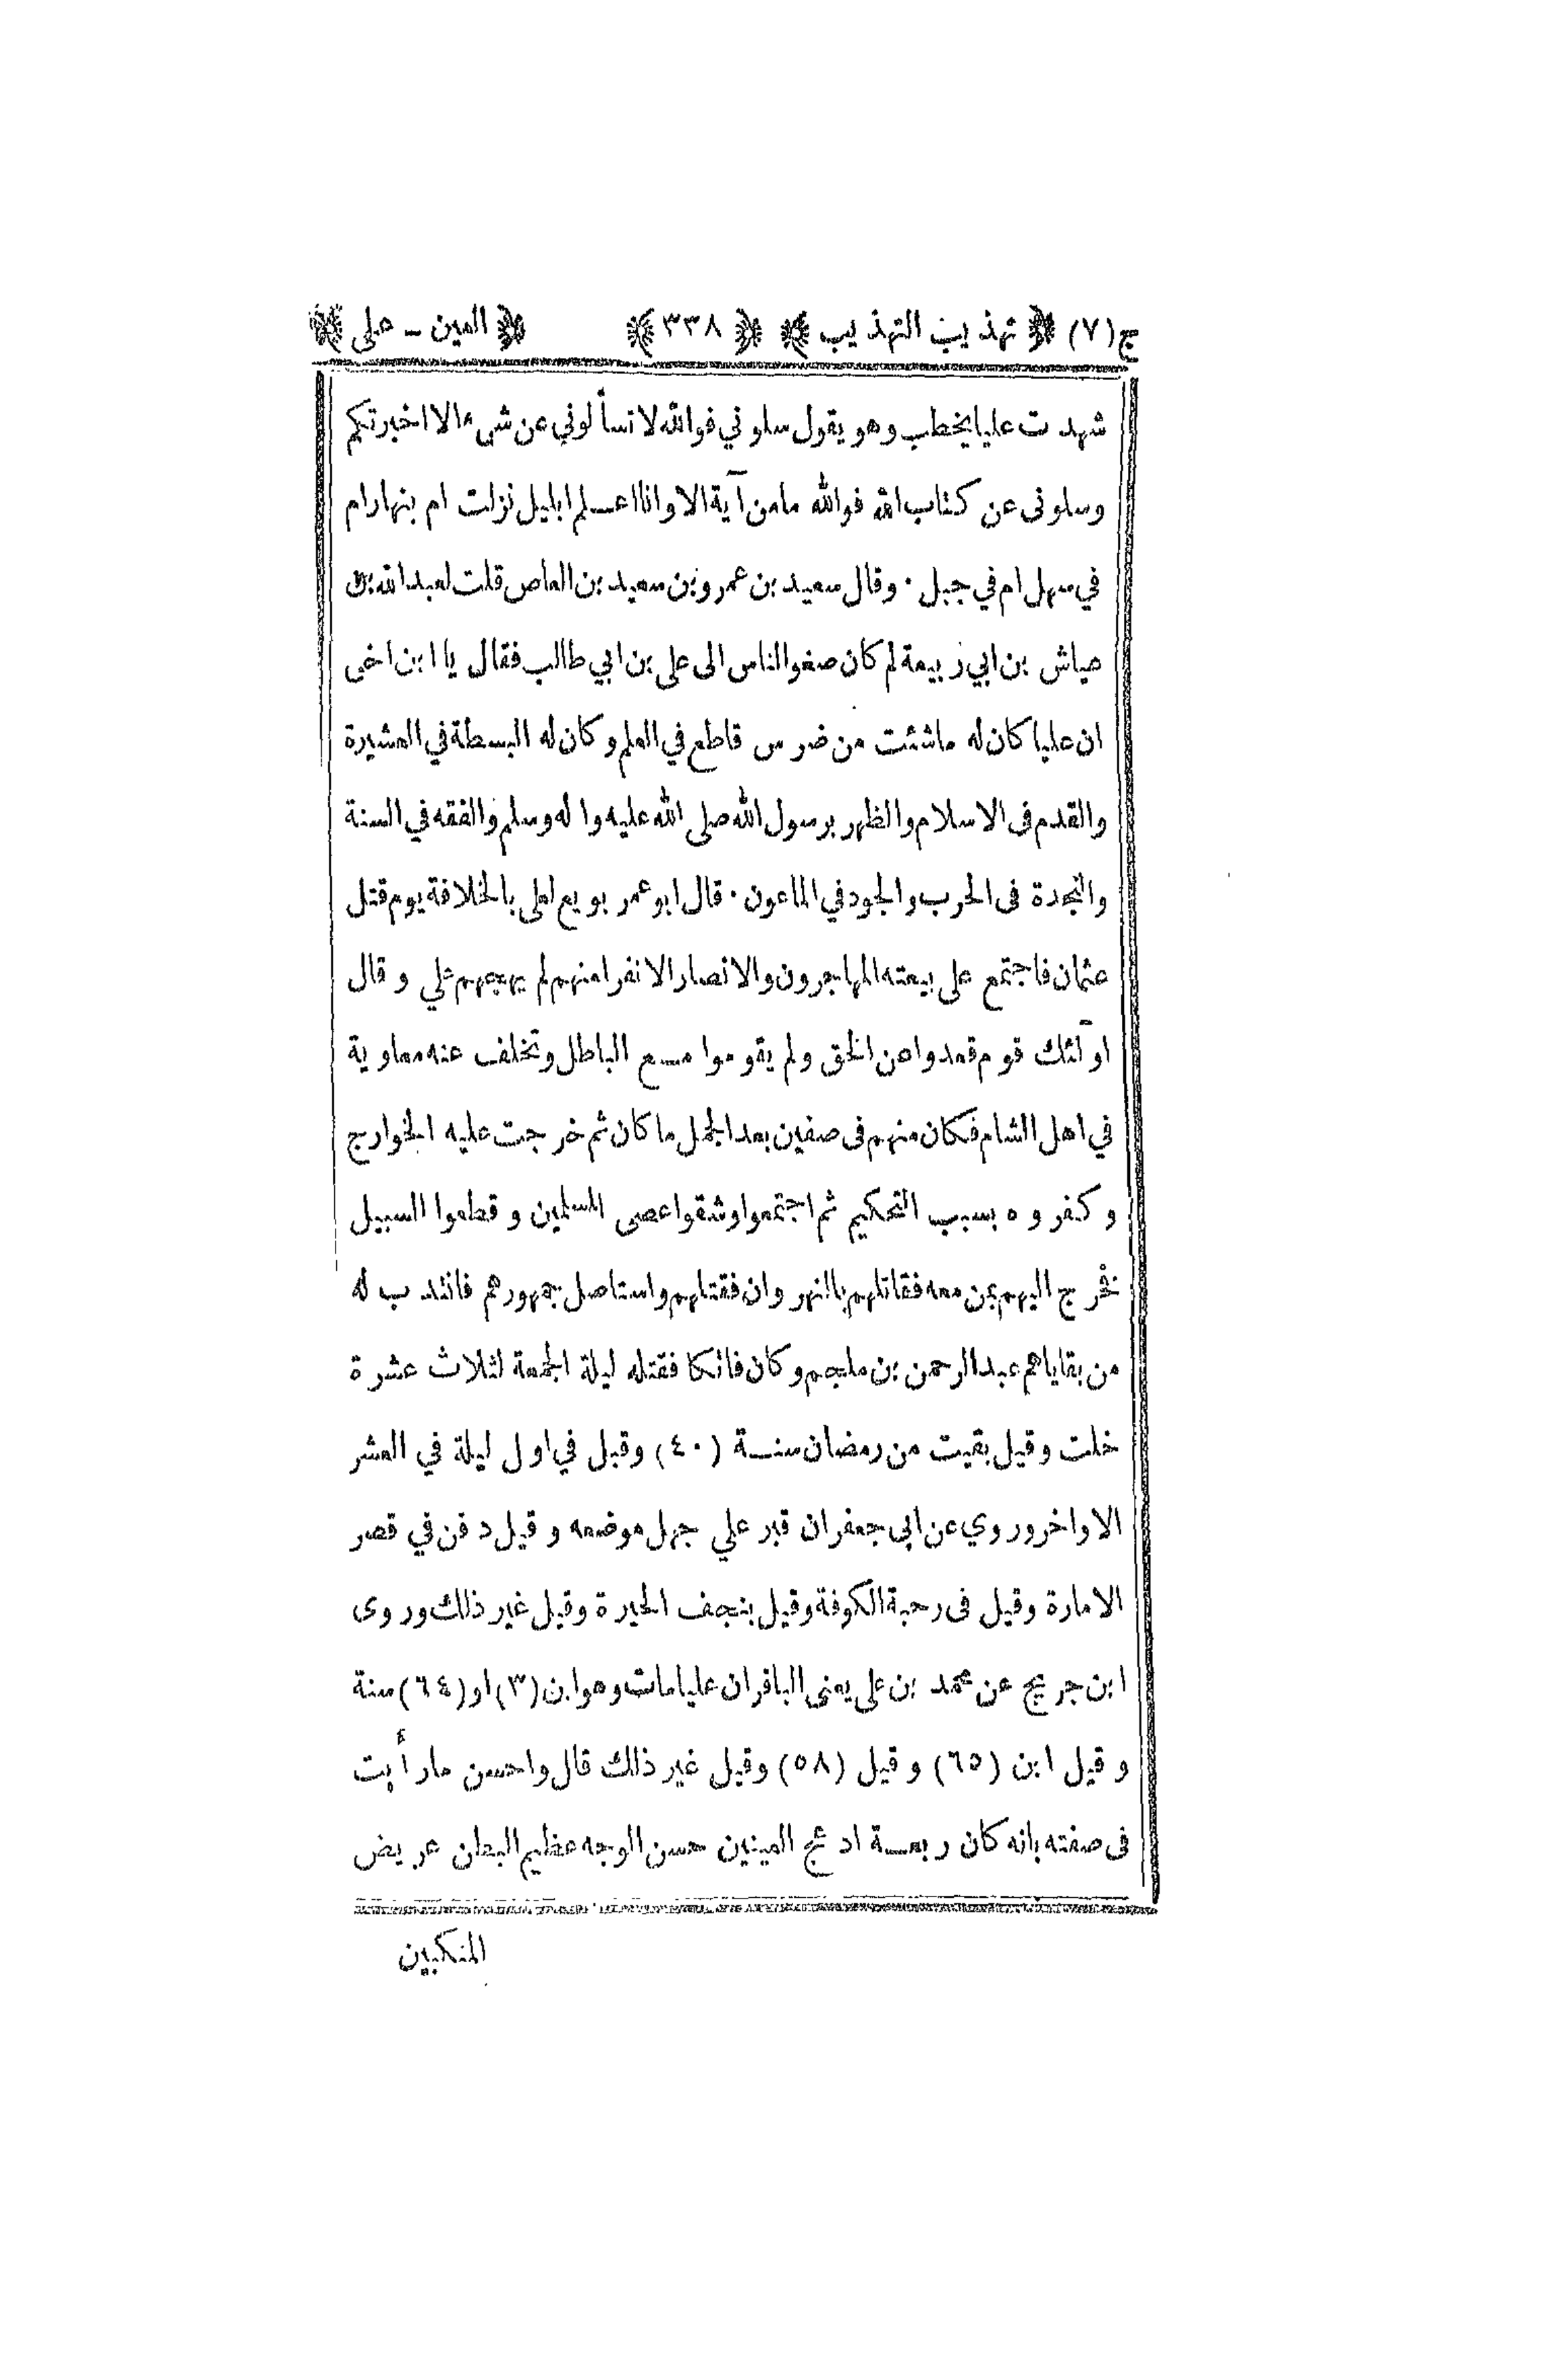 ج(٧) ﴿ تهذيب التهذيب ﴾ ﴿ ٣٣٨ ﴾ ﴿ العين - على ﴾
شهدت عليا يخطب وهو يقول سلوني فوالله لا تسألوني عن شيء الا اخبرتكم
وسلونى عن كتاب الله فوالله مامن آية الا وانا اعلم ابليل نزلت ام بنهار ام
في سهل ام في جبل · وقال سعيد بن عمرو بن سعيد بن العاص قلت لعبد الله بن
عياش بن ابي ربيعة لم كان صغو الناس الى على بن ابي طالب فقال يا ابن اخى
ان عليا كان له ماشئت من ضرس قاطع في العلم وكان له البسطة في العشيرة
والقدم فى الاسلام والظهر برسول الله صلى الله عليه واله وسلم والفقه في السنة
والنجدة فى الحرب والجود في الماعون · قال ابو عمر بويع لعلى بالخلافة يوم قتل
عثمان فاجتمع على بيعته المهاجرون والانصار الا نفرا منهم لم يهجهم علي وقال
اولٓئك قوم قعدوا عن الحق ولم يقوموا مع الباطل وتخلف عنه معاوية
في اهل الشام فكان منهم فى صفين بعد الجمل ما كان ثم خرجت عليه الخوارج
وكفروه بسبب التحكيم ثم اجتمعوا وشقوا عصى المسلمين وقطعوا السبيل
فخرج اليهم بمن معه فقاتلهم بالنهروان فقتلهم واستاصل جمهورهم فانتدب له
من بقاياهم عبد الرحمن بن ملجم وكان فاتكا فقتله ليلة الجمعة لثلاث عشرة
خلت وقيل بقيت من رمضان سنة (٤٠) وقيل في اول ليلة في العشر
الاواخر وروي عن ابى جعفر ان قبر علي جهل موضعه وقيل دفن في قصر
الامارة وقيل فى رحبة الكوفة وقيل بنجف الحيرة وقيل غير ذلك وروى
ابن جريج عن محمد بن على يعنى الباقر ان عليا مات وهو ابن (٣) او (٦٤) سنة
وقيل ابن (٦٥) وقيل (٥٨) وقيل غير ذلك قال واحسن ما رأيت
فى صفته بانه كان ربعة ادعج العينين حسن الوجه عظيم البطن عريض
المنكبين